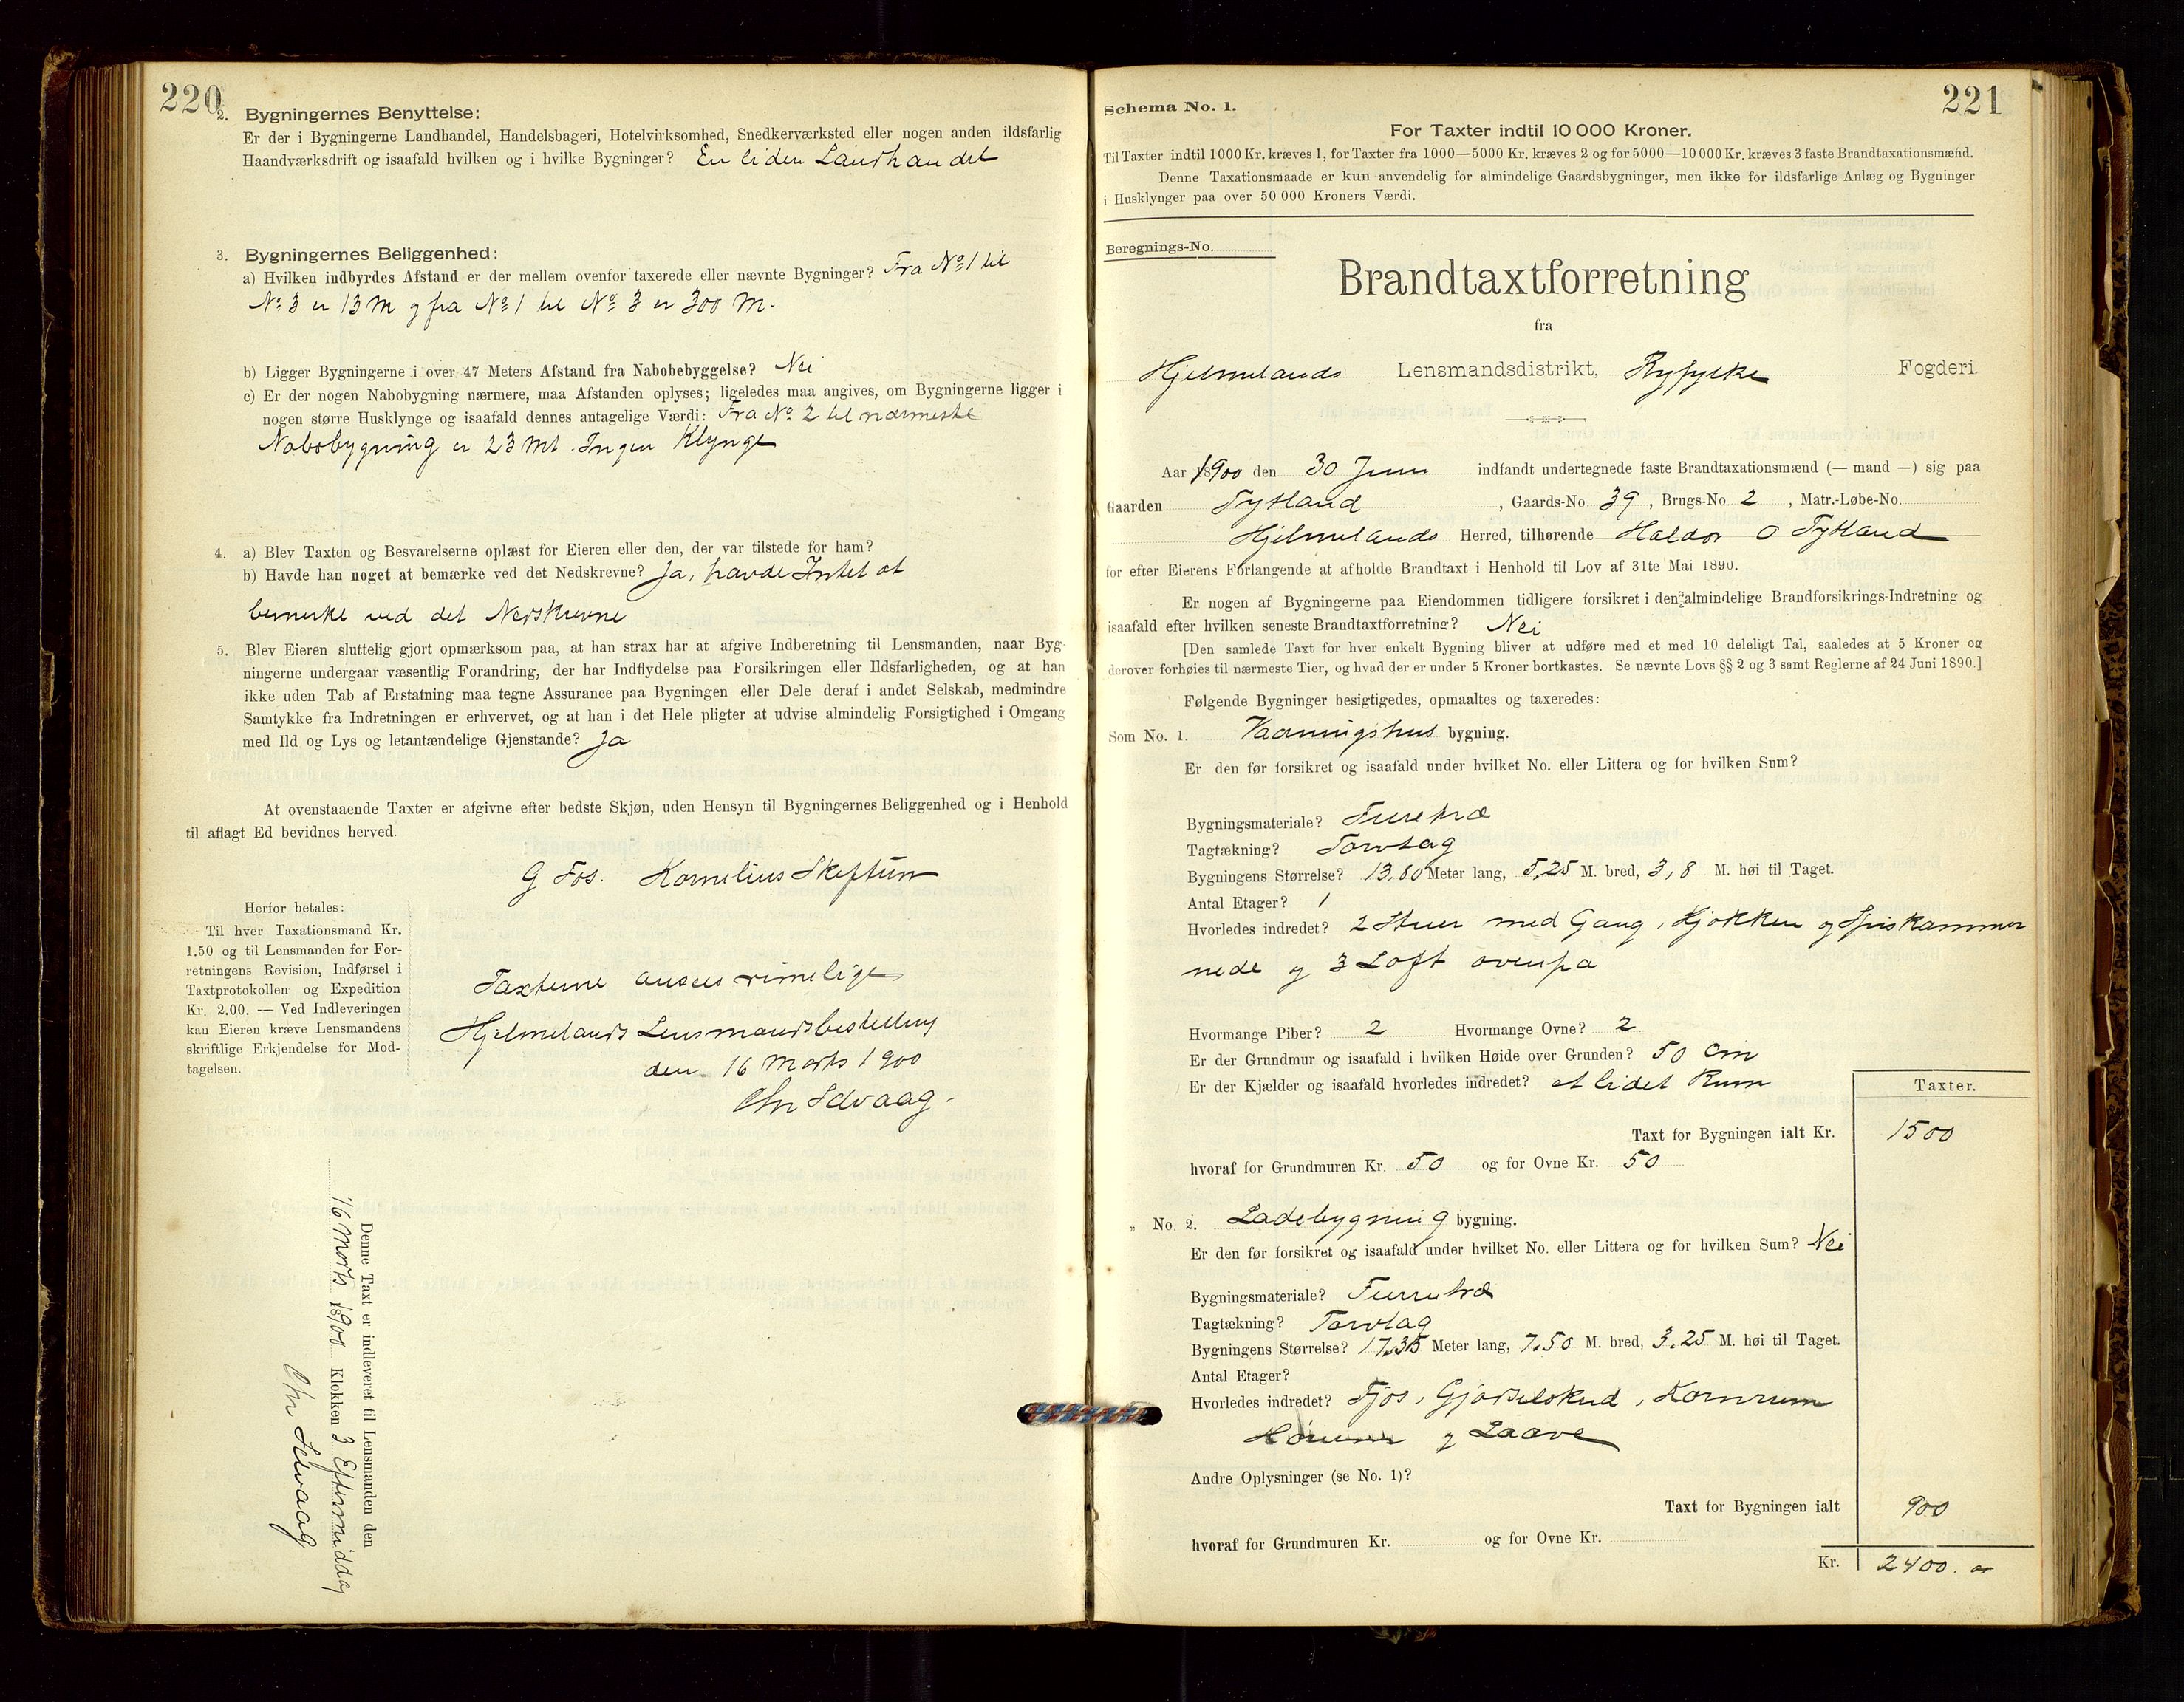 220
2. Bygningernes Benyttelse:
Er der i Bygningerne Landhandel, Handelsbageri, Hotelvirksomhed, Snedkerværksted eller nogen anden ildsfarlig
Haandværksdrift og isaafald hvilken og i hvilke Bygninger? En liden Landhandel
3. Bygningernes Beliggenhed:
a) Hvilken indbyrdes Afstand er der mellem ovenfor taxerede eller nævnte Bygninger? Fra No 1 til
No 3 er 13 M og fra No 1 til No 3 er 300 M.
b) Ligger Bygningerne i over 47 Meters Afstand fra Nabobebyggelse? Nei
c) Er der nogen Nabobygning nærmere, maa Afstanden oplyses; ligeledes maa angives, om Bygningerne ligger i
nogen større Husklynge og isaafald dennes antagelige Værdi: Fra No 2 til nærmeste
Nabobygning er 23 Mt. Ingen Klynge
4. a) Blev Taxten og Besvarelserne oplæst for Eieren eller den, der var tilstede for ham?
b) Havde han noget at bemærke ved det Nedskrevne? Ja, havde Intet at
bemerke ved det Nedskrevne
5. Blev Eieren sluttelig gjort opmærksom paa, at han strax har at afgive Indberetning til Lensmanden, naar Byg-
ningerne undergaar væsentlig Forandring, der har Indflydelse paa Forsikringen eller Ildsfarligheden, og at han
ikke uden Tab af Erstatning maa tegne Assurance paa Bygningen eller Dele deraf i andet Selskab, medmindre
Samtykke fra Indretningen er erhvervet, og at han i det Hele pligter at udvise almindelig Forsigtighed i Omgang
med Ild og Lys og letantændelige Gjenstande? Ja
At ovenstaaende Taxter er afgivne efter bedste Skjøn, uden Hensyn til Bygningernes Beliggenhed og i Henhold
til aflagt Ed bevidnes herved.
G Fos. Kornelius Skeftun
Herfor betales:
Til hver Taxationsmand Kr.
1.50 og til Lensmanden for For-
retningens Revision, Indførsel i
Taxtprotokollen og Expedition
Kr. 2.00. — Ved Indleveringen
kan Eieren kræve Lensmandens
skriftlige Erkjendelse for Mod-
tagelsen.
Taxterne ansees rimelige
Hjelmelands Lensmandsbestilling
den 16 Marts 1900
Chr
Denne Taxt er indleveret til Lensmanden den
16 Marts 1900 Klokken 3 Eftermiddag
Chr
221
Schema No. 1.
For Taxter indtil 10 000 Kroner.
Til Taxter indtil 1000 Kr. kræves 1, for Taxter fra 1000—5000 Kr. kræves 2 og for 5000—10 000 Kr. kræves 3 faste Brandtaxationsmænd.
Denne Taxationsmaade er kun anvendelig for almindelige Gaardsbygninger, men ikke for ildsfarlige Anlæg og Bygninger
i Husklynger paa over 50 000 Kroners Værdi.
Beregnings-No.
Brandtaxtforretning
fra
Hjelmelands Lensmandsdistrikt, Ryfylke Fogderi.
Aar 1900 den 30 Juni indfandt undertegnede faste Brandtaxationsmænd (— mand —) sig paa
Gaarden Tytland, Gaards-No. 39, Brugs-No. 2, Matr.-Løbe-No.
Hjelmelands Herred, tilhørende Haldor O Tytland
for efter Eierens Forlangende at afholde Brandtaxt i Henhold til Lov af 31te Mai 1890.
Er nogen af Bygningerne paa Eiendommen tidligere forsikret i den almindelige Brandforsikrings-Indretning og
isaafald efter hvilken seneste Brandtaxtforretning? Nei
[Den samlede Taxt for hver enkelt Bygning bliver at udføre med et med 10 deleligt Tal, saaledes at 5 Kroner og
derover forhøies til nærmeste Tier, og hvad der er under 5 Kroner bortkastes. Se nævnte Lovs §§ 2 og 3 samt Reglerne af 24 Juni 1890.]
Følgende Bygninger besigtigedes, opmaaltes og taxeredes:
Som No. 1. Vaaningshus bygning.
Er den før forsikret og isaafald under hvilket No. eller Littera og for hvilken Sum?
Bygningsmateriale? Furetræ
Tagtækning? Torvtag
Bygningens Størrelse? 13,80 Meter lang, 5,25 M. bred, 3,8 M. høi til Taget.
Antal Etager? 1
Hvorledes indredet? 2 Stuer med Gang, Kjøkken og Spiskammer
nede og 3 Loft ovenpa
Hvormange Piber? 2 Hvormange Ovne? 2
Er der Grundmur og isaafald i hvilken Høide over Grunden? 50 cm
Er der Kjælder og isaafald hvorledes indredet? et lidet Rum
Taxter.
Taxt for Bygningen ialt Kr. 1500
hvoraf for Grundmuren Kr. 50 og for Ovne Kr. 50
„ No. 2. Ladebygning bygning.
Er den før forsikret og isaafald under hvilket No. eller Littera og for hvilken Sum? Nei
Bygningsmateriale? Furrutræ
Tagtækning? Torvtag
Bygningens Størrelse? 17,35 Meter lang, 7.50 M. bred, 3.25 M. høi til Taget.
Antal Etager?
Hvorledes indredet? Fjøs, Gjødselskud, Kornrum
og Laave
Andre Oplysninger (se No. 1)?
Taxt for Bygningen ialt 900
hvoraf for Grundmuren Kr. og for Ovne Kr.
Kr. 2400. 00